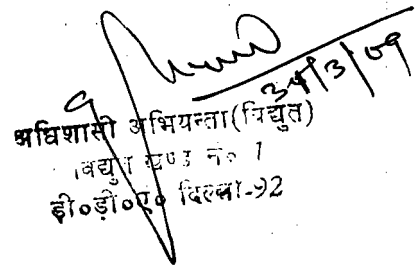 31/3/09
अधिशासी अभियन्ता(विद्युत)
विद्युत खण्ड नं० 1
डी०डी०ए० दिल्ली-92